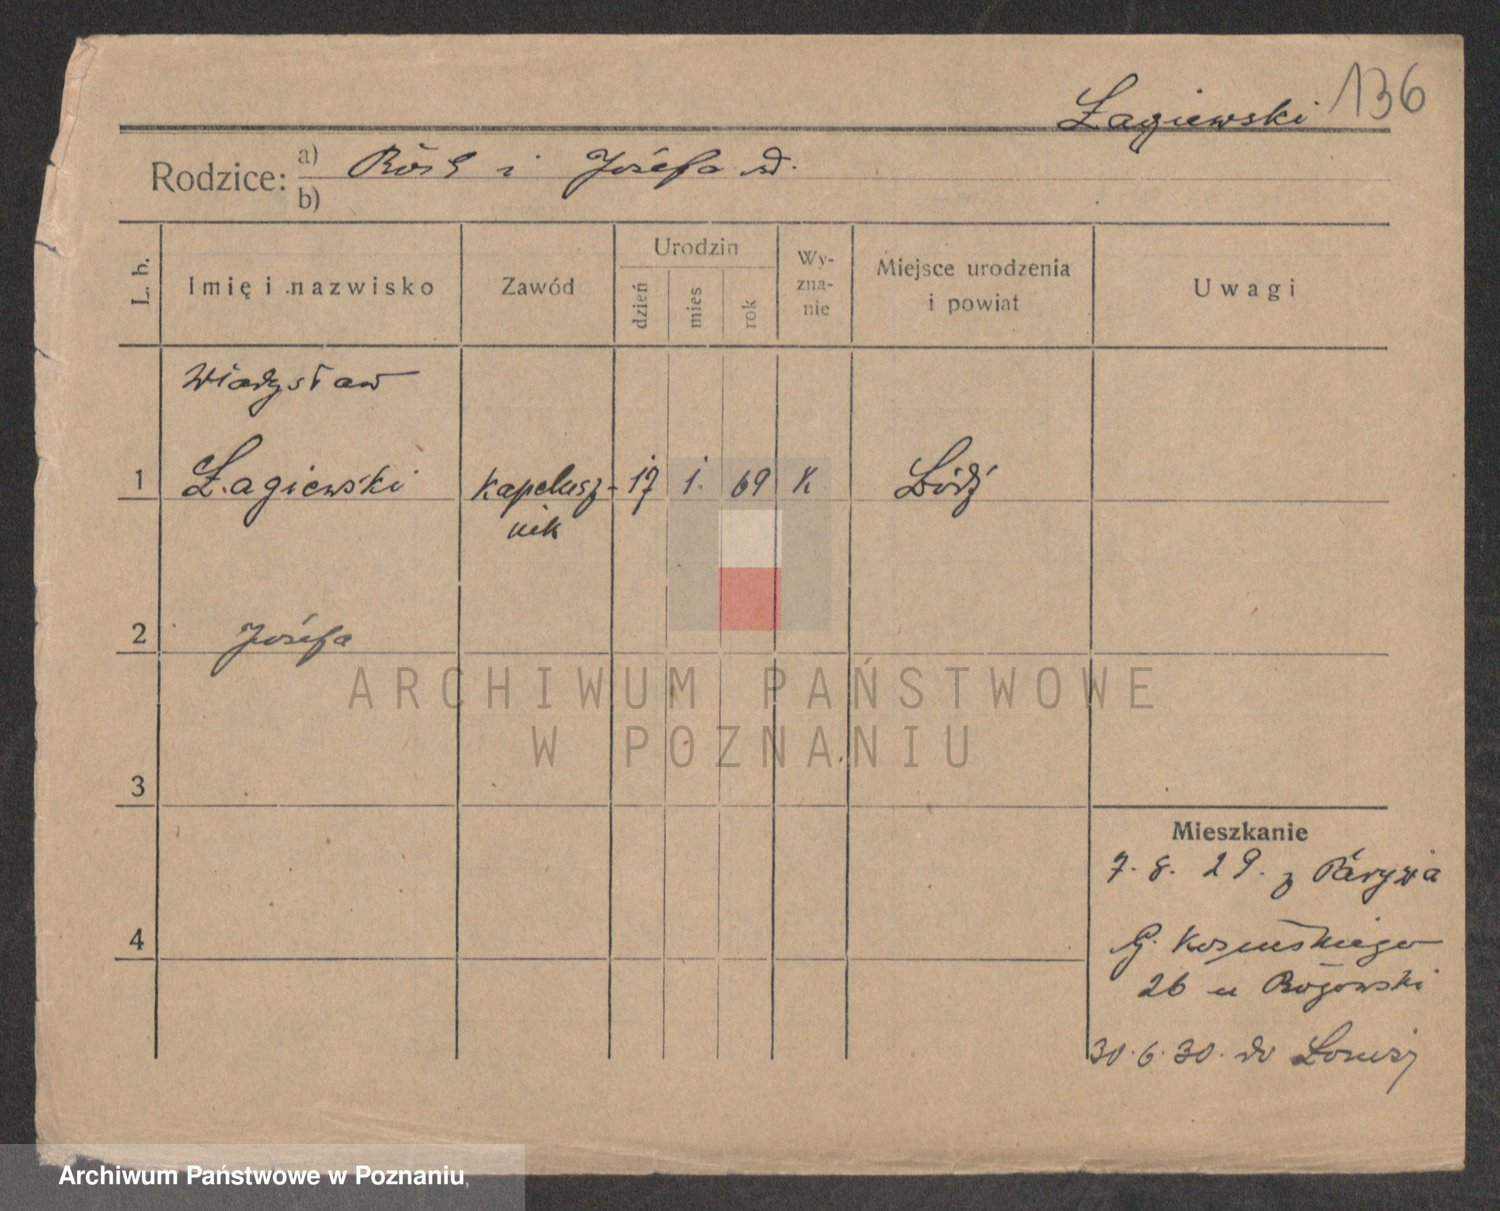 Łagiewski 136
Rodzice: a) i Józefa
b)
L. b.
Imię i nazwisko
Zawód
Urodzin
dzień
mies
rok
Wy-
zna-
nie
Miejsce urodzenia
i powiat
Uwagi
Władysław
1 Łagiewski kapelusz- 17 1. 69 K Łódź
nik
2 Józefa
ARCHIWUM PAŃSTWOWE
W POZNANIU
3
Mieszkanie
7. 8. 29. z Paryża
4
G. Kosińskiego
26 u Rogowski
30. 6. 30. do
Archiwum Państwowe w Poznaniu